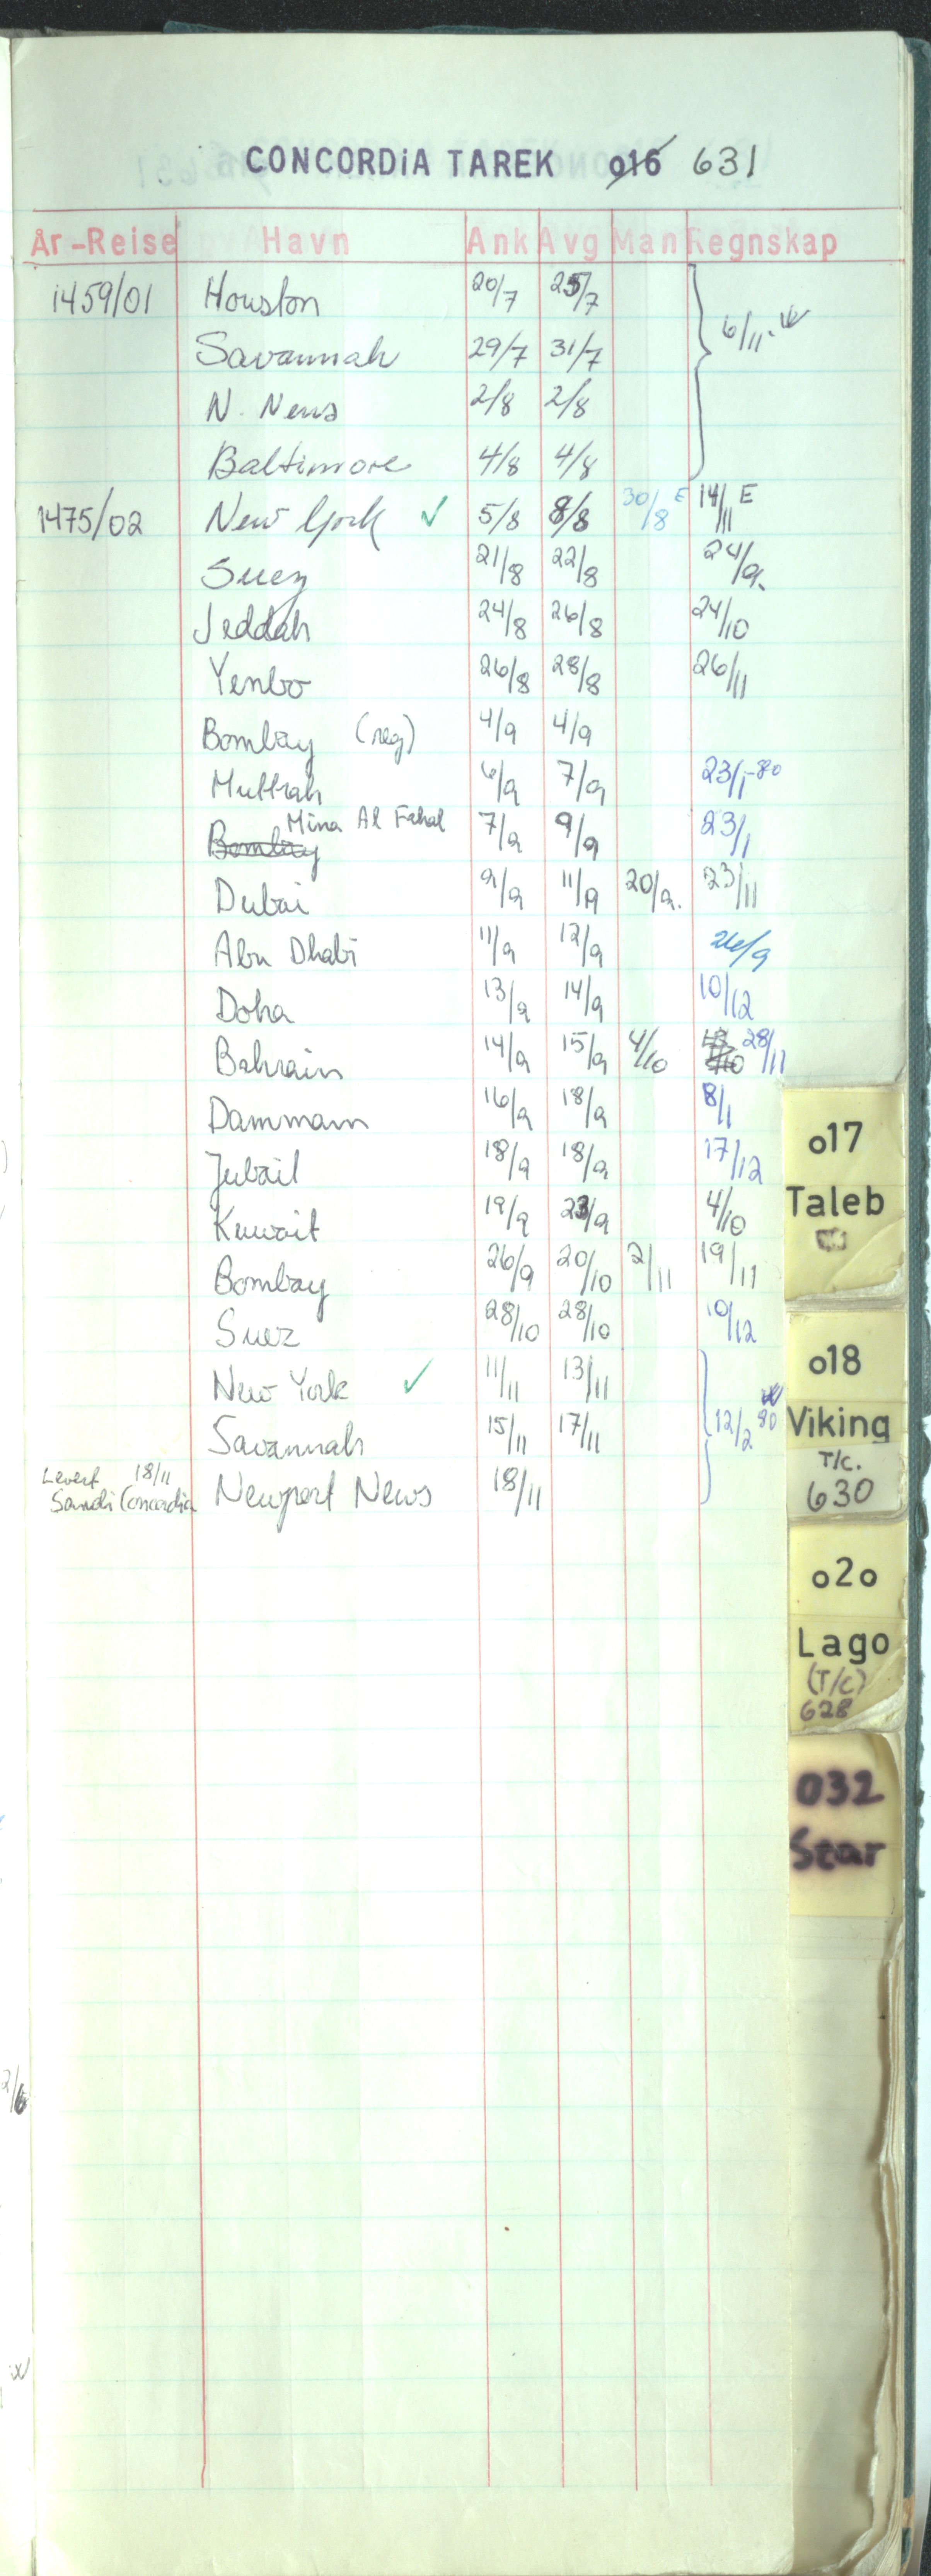 CONCORDiA TAREK o16 631
År-Reise Havn Ank Avg Man Regnskap
1459/01 Houston 20/7 25/7
Savannah 29/7 31/7 6/11
N. News 2/8 2/8
Baltimore 4/8 4/8
1475/02 New York ✓ 5/8 8/8 30/8 E 14/11 E
Suez 21/8 22/8 24/9.
Jeddah 24/8 26/8 24/10
Yenbo 26/8 28/8 26/11
Bombay (reg) 4/9 4/9
Muttrah 6/9 7/9 23/1-80
Bombay Mina Al Fahal 7/9 9/9 23/1
Dubai 9/9 11/9 20/9. 23/11
Abu Dhabi 11/9 12/9 26/9
Doha 13/9 14/9 10/12
Bahrain 14/9 15/9 4/10 28/11
Dammam 16/9 18/9 8/1
Jubail 18/9 18/9 17/12
Kuwait 19/9 23/9 4/10
Bombay 26/9 20/10 2/11 19/11
Suez 28/10 28/10 10/12
New York ✓ 11/11 13/11
Savannah 15/11 17/11 12/2 80
Levert 18/11
Saudi Concordia Newport News 18/11
o17
Taleb
o18
Viking
T/c.
630
o2o
Lago
(T/c)
628
032
Star
2/6